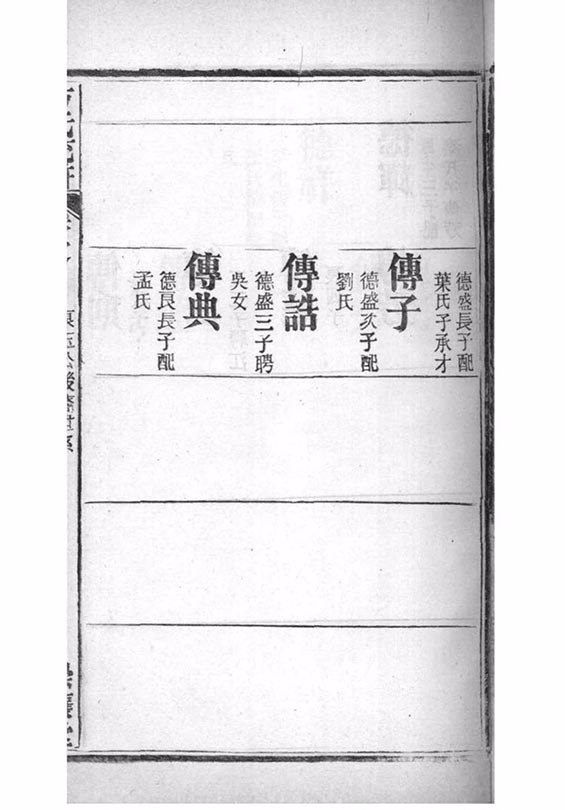 德盛長子配
葉氏子承才
傳子
德盛次子配
劉氏
傳誥
德盛三子聘
吳女
傳典
德良長子配
孟氏
後裔世系